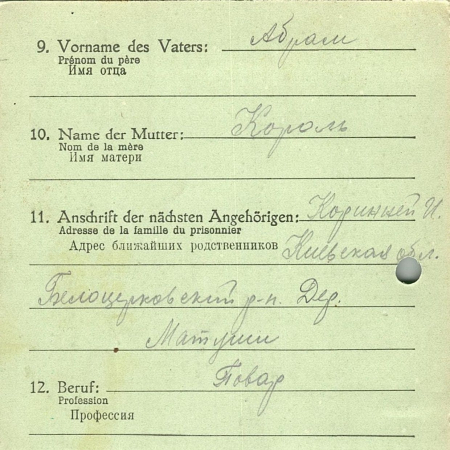 9. Vorname des Vaters: Абрам
Prénom du père
Имя отца
10. Name der Mutter: Король
Nom de la mère
Имя матери
11. Anschrift der nächsten Angehörigen: И.
Adresse de la famille du prisonnier
Адрес ближайших родственников Киевская обл.
Белоцерковский р-н. Дер.
Матуши
12. Beruf: Повар
Profession
Профессия